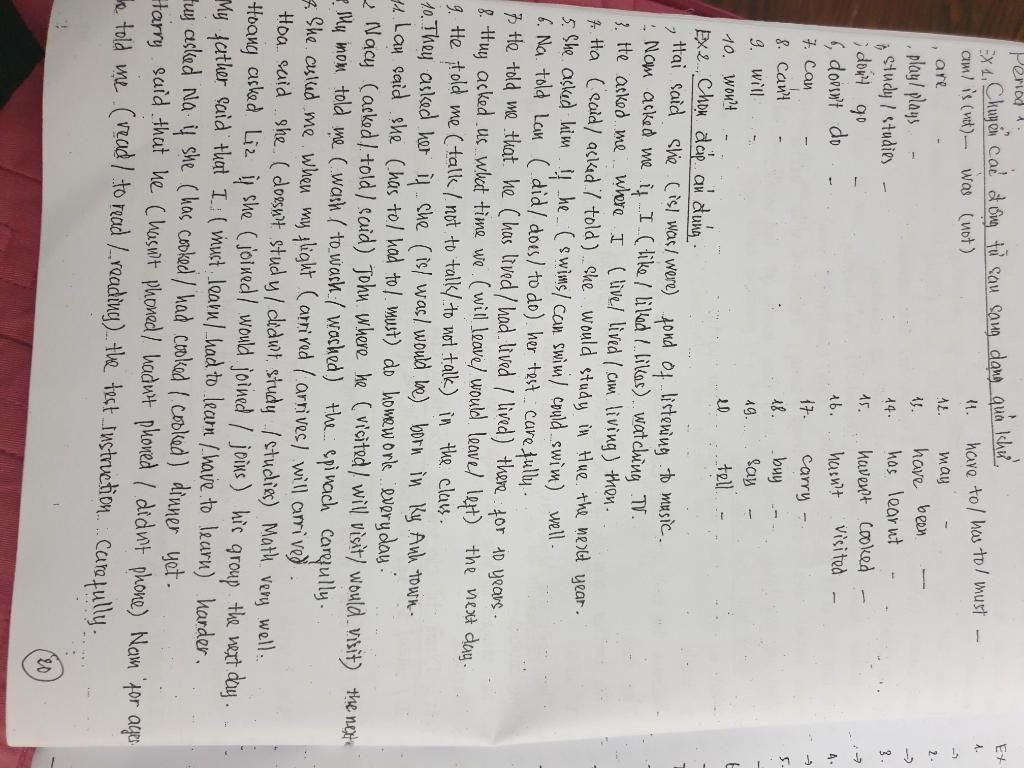 Period 1.
EX 1. Chuyển các động từ sau sang dạng quá khứ
am/ is (not) - was (not)
, are -
, play/ plays -
, study/ studies -
, don't go -
6, doesn't do -
7. can -
8. can't -
9. will -
10. won't -
11. have to/ has to/ must -
12. may -
13. have been -
14. has learnt -
15. haven't cooked -
16. hasn't visited -
17. carry -
18. buy -
19. say -
20 tell -
EX 2. Chọn đáp án đúng.
, Hai said she (is/ was/ were) fond of listening to music.
. Nam asked me if I (like/ liked/ likes) watching TV.
3. He asked me where I (live/ lived/ am living) then.
4. Ha (said/ asked/ told) she would study in Hue the next year.
5. She asked him if he (swims/ can swim/ could swim) well.
6. Na told Lan (did/ does/ to do) her test carefully.
7. He told me that he (has lived/ had lived/ lived) there for 10 years.
8. Huy asked us what time we (will leave/ would leave/ left) the next day.
9. He told me (talk/ not to talk/ to not talk) in the class.
10. They asked her if she (is/ was/ would be) born in Ky Anh town.
11. Lan said she (has to/ had to/ must) do homework everyday.
2 Nacy (asked/ told/ said) John where he (visited/ will visit/ would visit) the next
My mom told me (wash/ to wash/ washed) the spinach carefully.
She asked me when my flight (arrived/ arrives/ will arrived).
Hoa said she (doesn't study/ didn't study/ studies) Math very well.
Hoang asked Liz if she (joined/ would joined/ joins) his group the next day.
My father said that I (must learn/ had to learn/ have to learn) harder.
Huy asked Na if she (has cooked/ had cooked/ cooked) dinner yet.
Harry said that he (hasn't phoned/ hadn't phoned/ didn't phone) Nam for ages
told me (read/ to read/ reading) the test instruction carefully.
20
Ex
1.
→
2.
→
3.
→
4.
→
5.
6
7